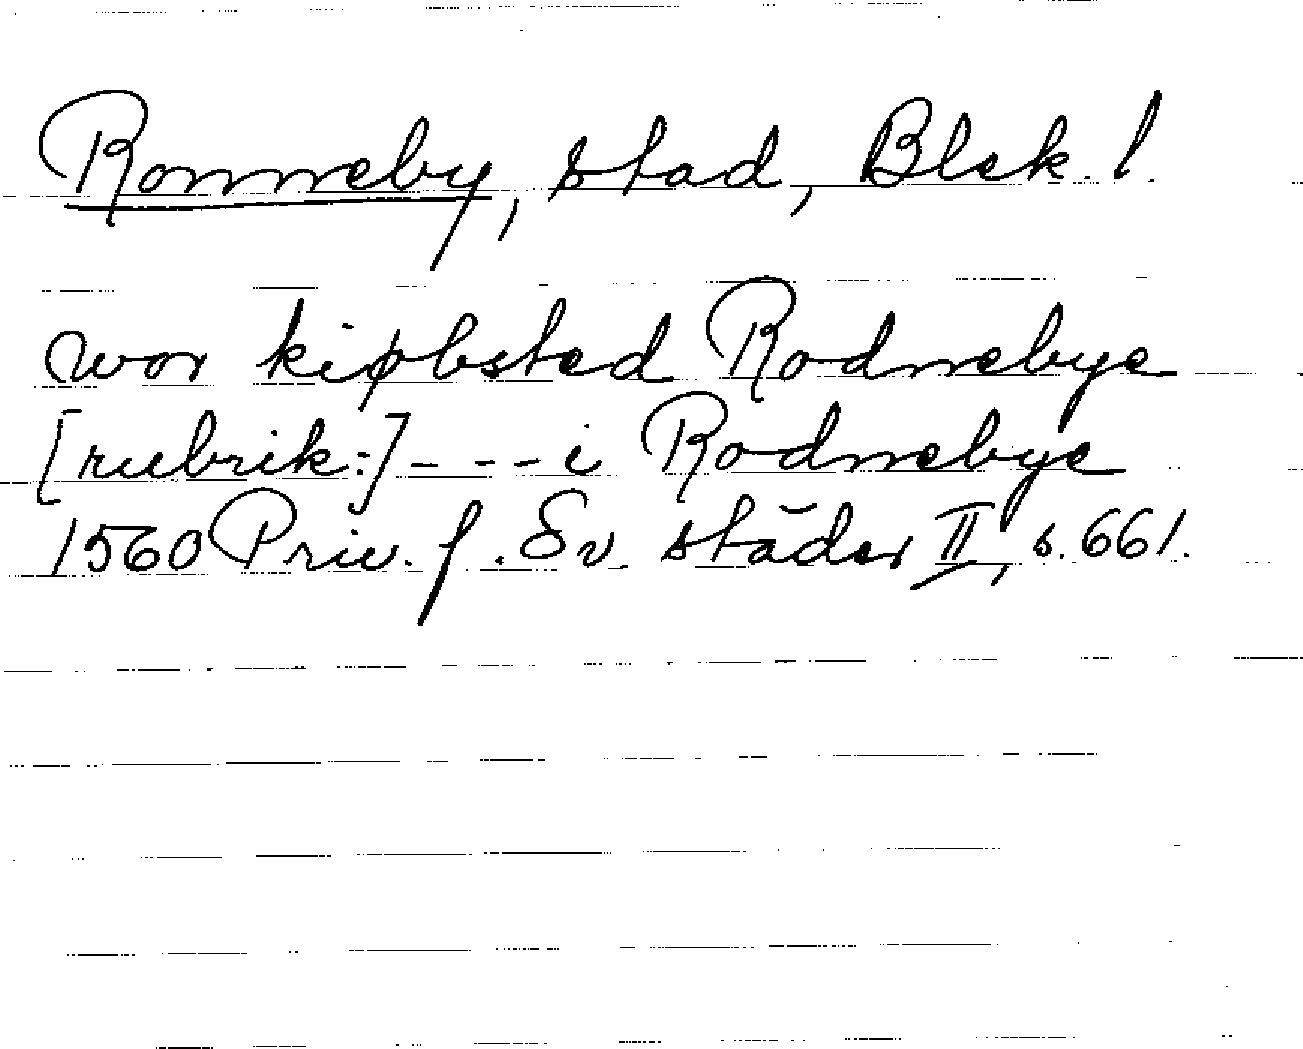 Ronneby, stad, Blek. l.
wor kiøbsted Rodnebye
[rubrik:] - - - i Rodnebye
1560 Priv. f. Sv. städer II, s. 661.